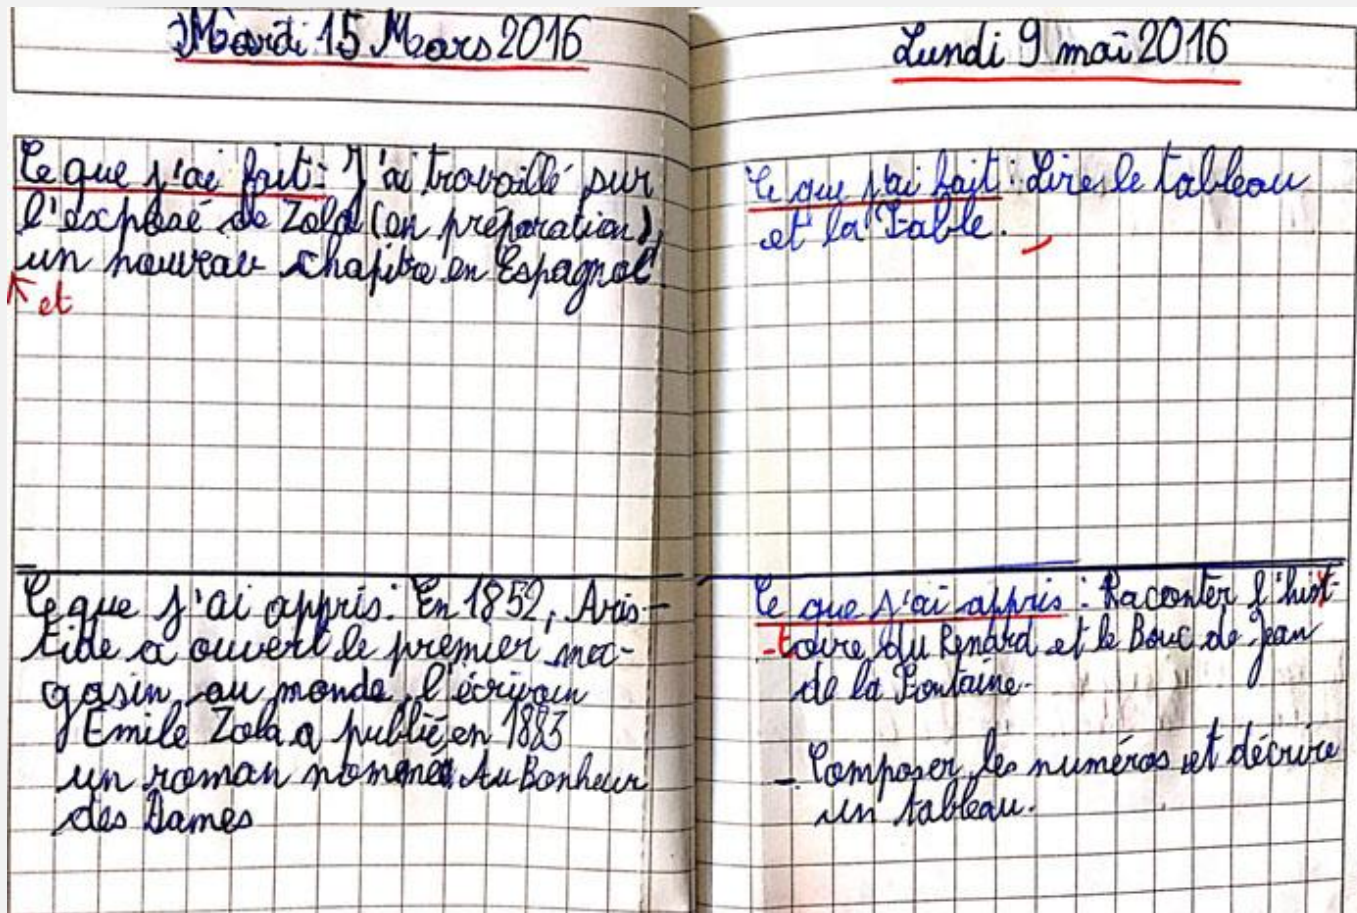 Mardi 15 Mars 2016
Ce que j'ai fait : J'ai travaillé sur
l'exposé de Zola (en préparation),
un nouveau chapitre en Espagnol.
et
Ce que j'ai appris : En 1852, Aris-
tide a ouvert le premier ma-
gasin au monde, l'écrivain
Emile Zola a publié en 1883
un roman nommé Au Bonheur
des Dames
Lundi 9 mai 2016
Ce que j'ai fait : Lire le tableau
et la Fable.
Ce que j'ai appris : Raconter l'hist-
-toire du Renard et le Bouc de Jean
de la Fontaine.
- Composer les numéros et décrire
un tableau.